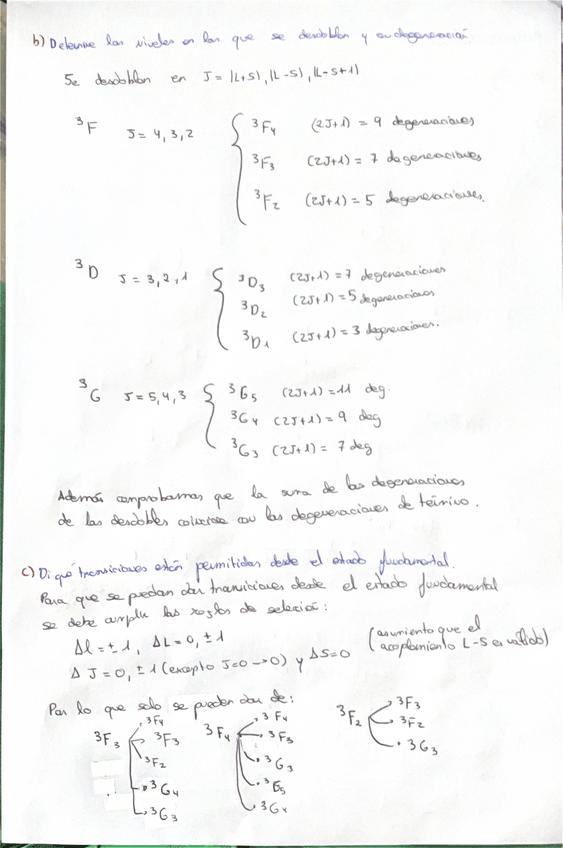 b) Determine los niveles en los que se desdoblan y su degeneración
Se desdoblan en J = |L+S|, |L-S|, |L-S+1|
³F J = 4, 3, 2
³F₄ (2J+1) = 9 degeneraciones
³F₃ (2J+1) = 7 degeneraciones
³F₂ (2J+1) = 5 degeneraciones.
³D J = 3, 2, 1
³D₃ (2J+1) = 7 degeneraciones
³D₂ (2J+1) = 5 degeneraciones
³D₁ (2J+1) = 3 degeneraciones.
³G J = 5, 4, 3
³G₅ (2J+1) = 11 deg.
³G₄ (2J+1) = 9 deg
³G₃ (2J+1) = 7 deg
Además comprobamos que la suma de las degeneraciones
de los desdobles coincide con las degeneraciones de término.
c) Di qué transiciones están permitidas desde el estado fundamental.
Para que se puedan dar transiciones desde el estado fundamental
se debe cumplir las reglas de selección:
Δl = ± 1, ΔL = 0, ± 1
Δ J = 0, ± 1 (excepto J=0 → 0) y ΔS = 0 (asumiento que el
acoplamiento L-S es válido)
Por lo que solo se pueden dar de:
³F₃ ³F₄ ³F₃ ³F₂ ³G₄ ³G₃
³F₄ ³F₄ ³F₃ ³G₃ ³G₅ ³G₄
³F₂ ³F₃ ³F₂ ³G₃